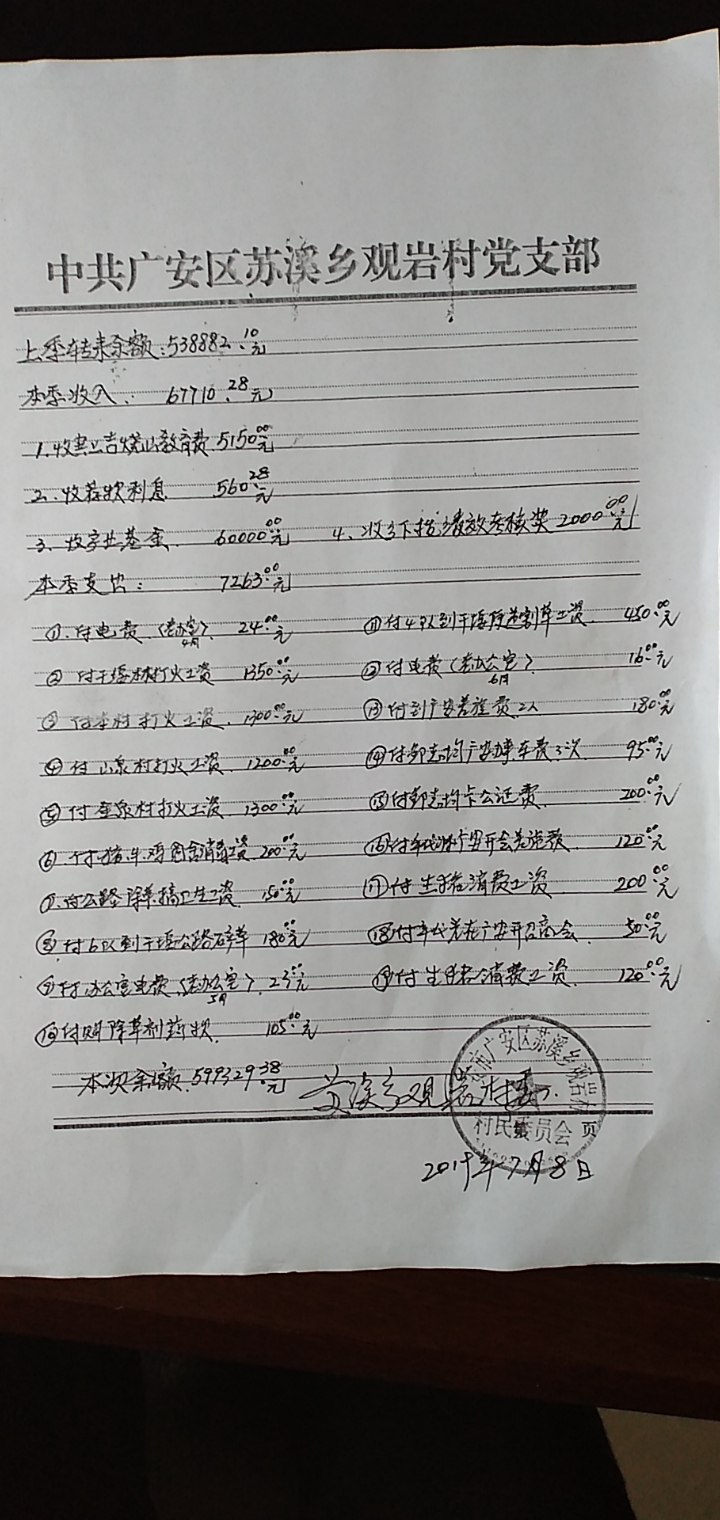 中共广安区苏溪乡观岩村党支部
上季转来余额:538882.10元
本季收入: 67710.28元
1.收 吉烧山教育费 5150.00元
2.收存款利息 560.28元
3.收 业基金 60000.00元 4.收乡下拨绩效考核奖 2000.00元
本季支出: 7263.00元
①.付电费(老办公室)4月 24.00元
②付干 村打火工资 1350.00元
③付本村打火工资 1300.00元
④付山泉村打火工资 1200.00元
⑤付 泉村打火工资 1300.00元
⑥付猪牛鸡 舍消毒工资 200.00元
⑦.付公路除草搞卫生工资 150.00元
⑧付6队到干 公路 草 180.00元
⑨付办公室电费(老办公室)5月 23.00元
⑩付购除草剂药款 105.00元
⑪付4队到干 割草工资 450.00元
⑫付电费(老办公室)6月 16.00元
⑬付到广安差旅费2人 180.00元
⑭付 志均广安办事车费3次 95.00元
⑮付 志均 公证费 200.00元
⑯付 广安开会差旅费 120.00元
⑰付生猪消费工资 200.00元
⑱付 代 在广安开招商会 50.00元
⑲付生猪消费工资 120.00元
本次余额 599329.38元
苏溪乡观岩村
广安区苏溪乡观岩村
村民委员会
第 页
2019年7月8日